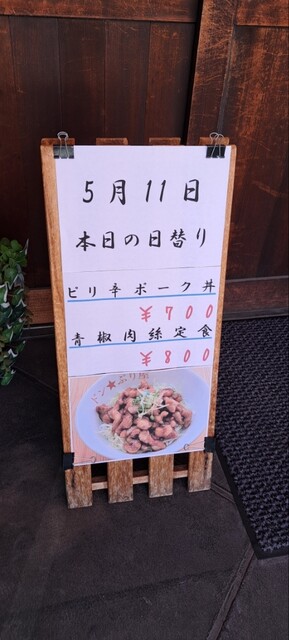 5月11日
本日の日替り
ピリ辛ポーク丼
¥700
青椒肉絲定食
¥800
ドン★ぶり屋